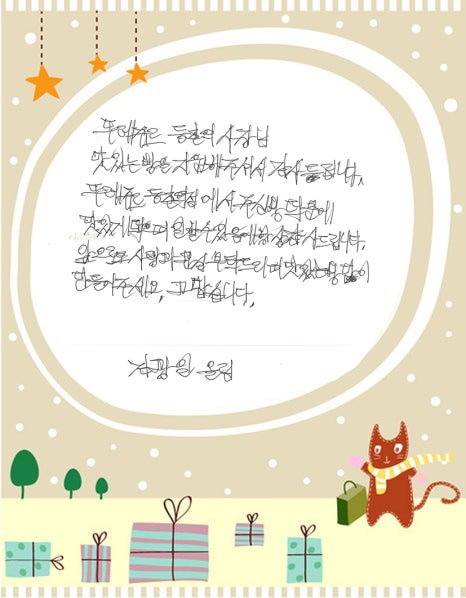 뚜레쥬르 동천역 사장님
맛있는 빵을 지원해주셔서 감사드립니다.
뚜레쥬르 동천역점에서 주신빵 덕분에
맛있게 먹으며 일할수있음에 항상감사드립니다.
앞으로도 사랑과 관심 부탁드리며 맛있는빵 많이
만들어주세요. 고맙습니다.
올림